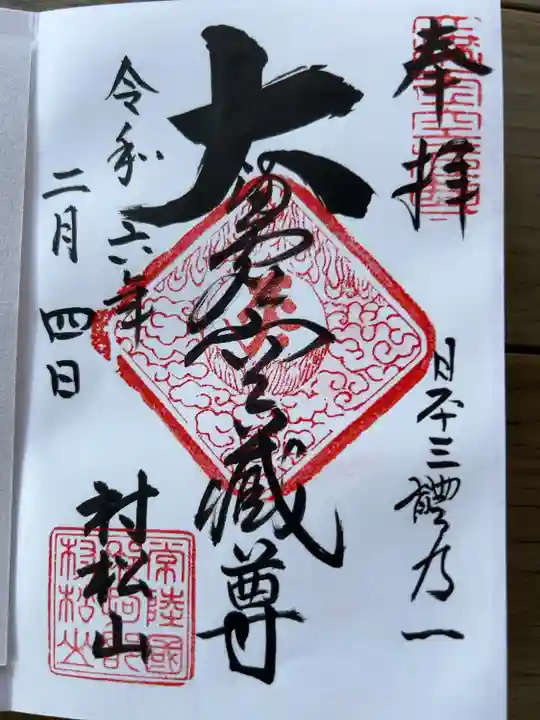 奉拝
日本三體乃一
大
虚空蔵尊
令和六年
二月四日
村松山
常陸國
那珂郡
村松山